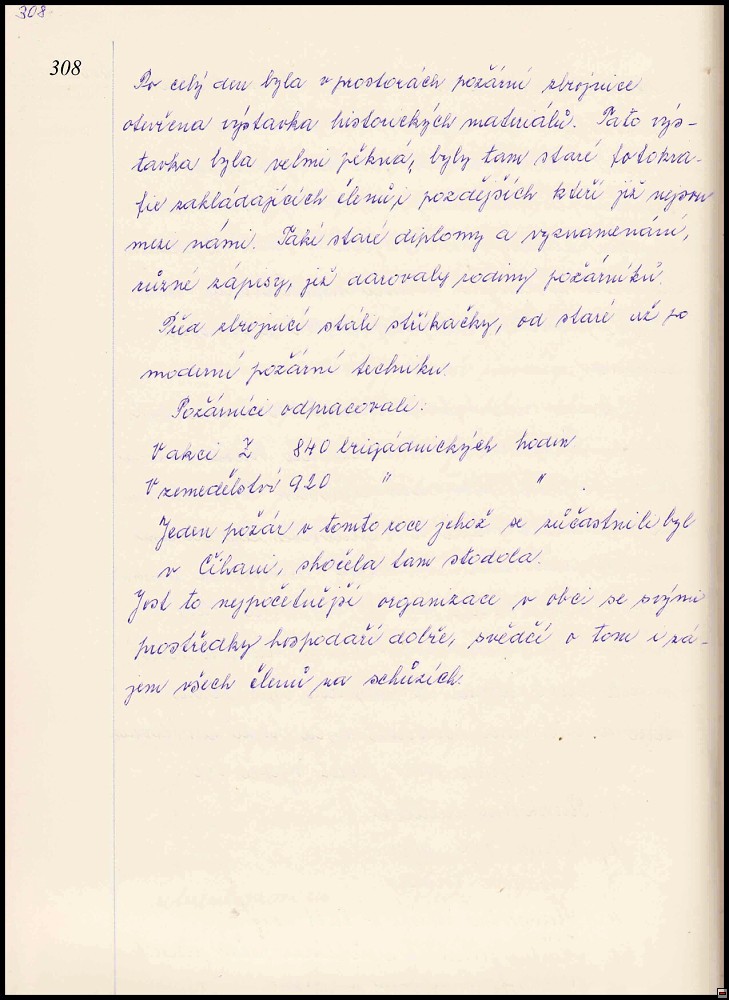 308
308
Po celý den byla v prostorách požární zbrojnice
otevřena výstavka historických materiálů. Tato výs-
tavka byla velmi pěkná, byly tam staré fotokra-
fie zakládajících členů i pozdějších kteří již nejsou
mezi námi. Také staré diplomy a vyznamenání,
různé zápisy, jež darovaly rodiny požárníků.
Před zbrojnicí stáli stříkačky, od staré až po
moderní požární techniku.
Požárníci odpracovali:
V akci Z 840 brigádnických hodin
V zemedělství 920 " " .
Jeden požár v tomto roce jehož se zúčastnili byl
v Číhani, shořela tam stodola.
Jest to nejpočetnější organizace v obci se svými
prostředky hospodaří dobře, svědčí o tom i zá-
jem všech členů na schůzích.